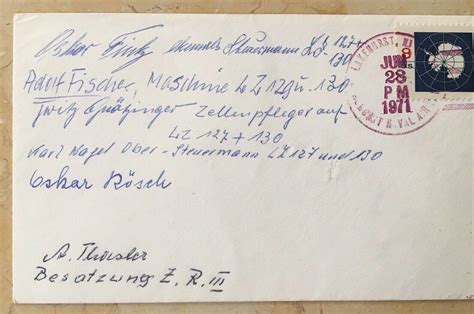 Oskar Fink damals Steuermann LZ 127 +
130
Adolf Fischer, Maschine LZ 129 u. 130
Fritz Grötzinger Zellenpfleger auf
LZ 127 + 130
Karl Nagel Ober-Steuermann LZ 127 und 130
Oskar Rösch
A. Thasler
Besatzung Z. R. III
LAKEHURST, NJ
JUN
28
PM
1971
8